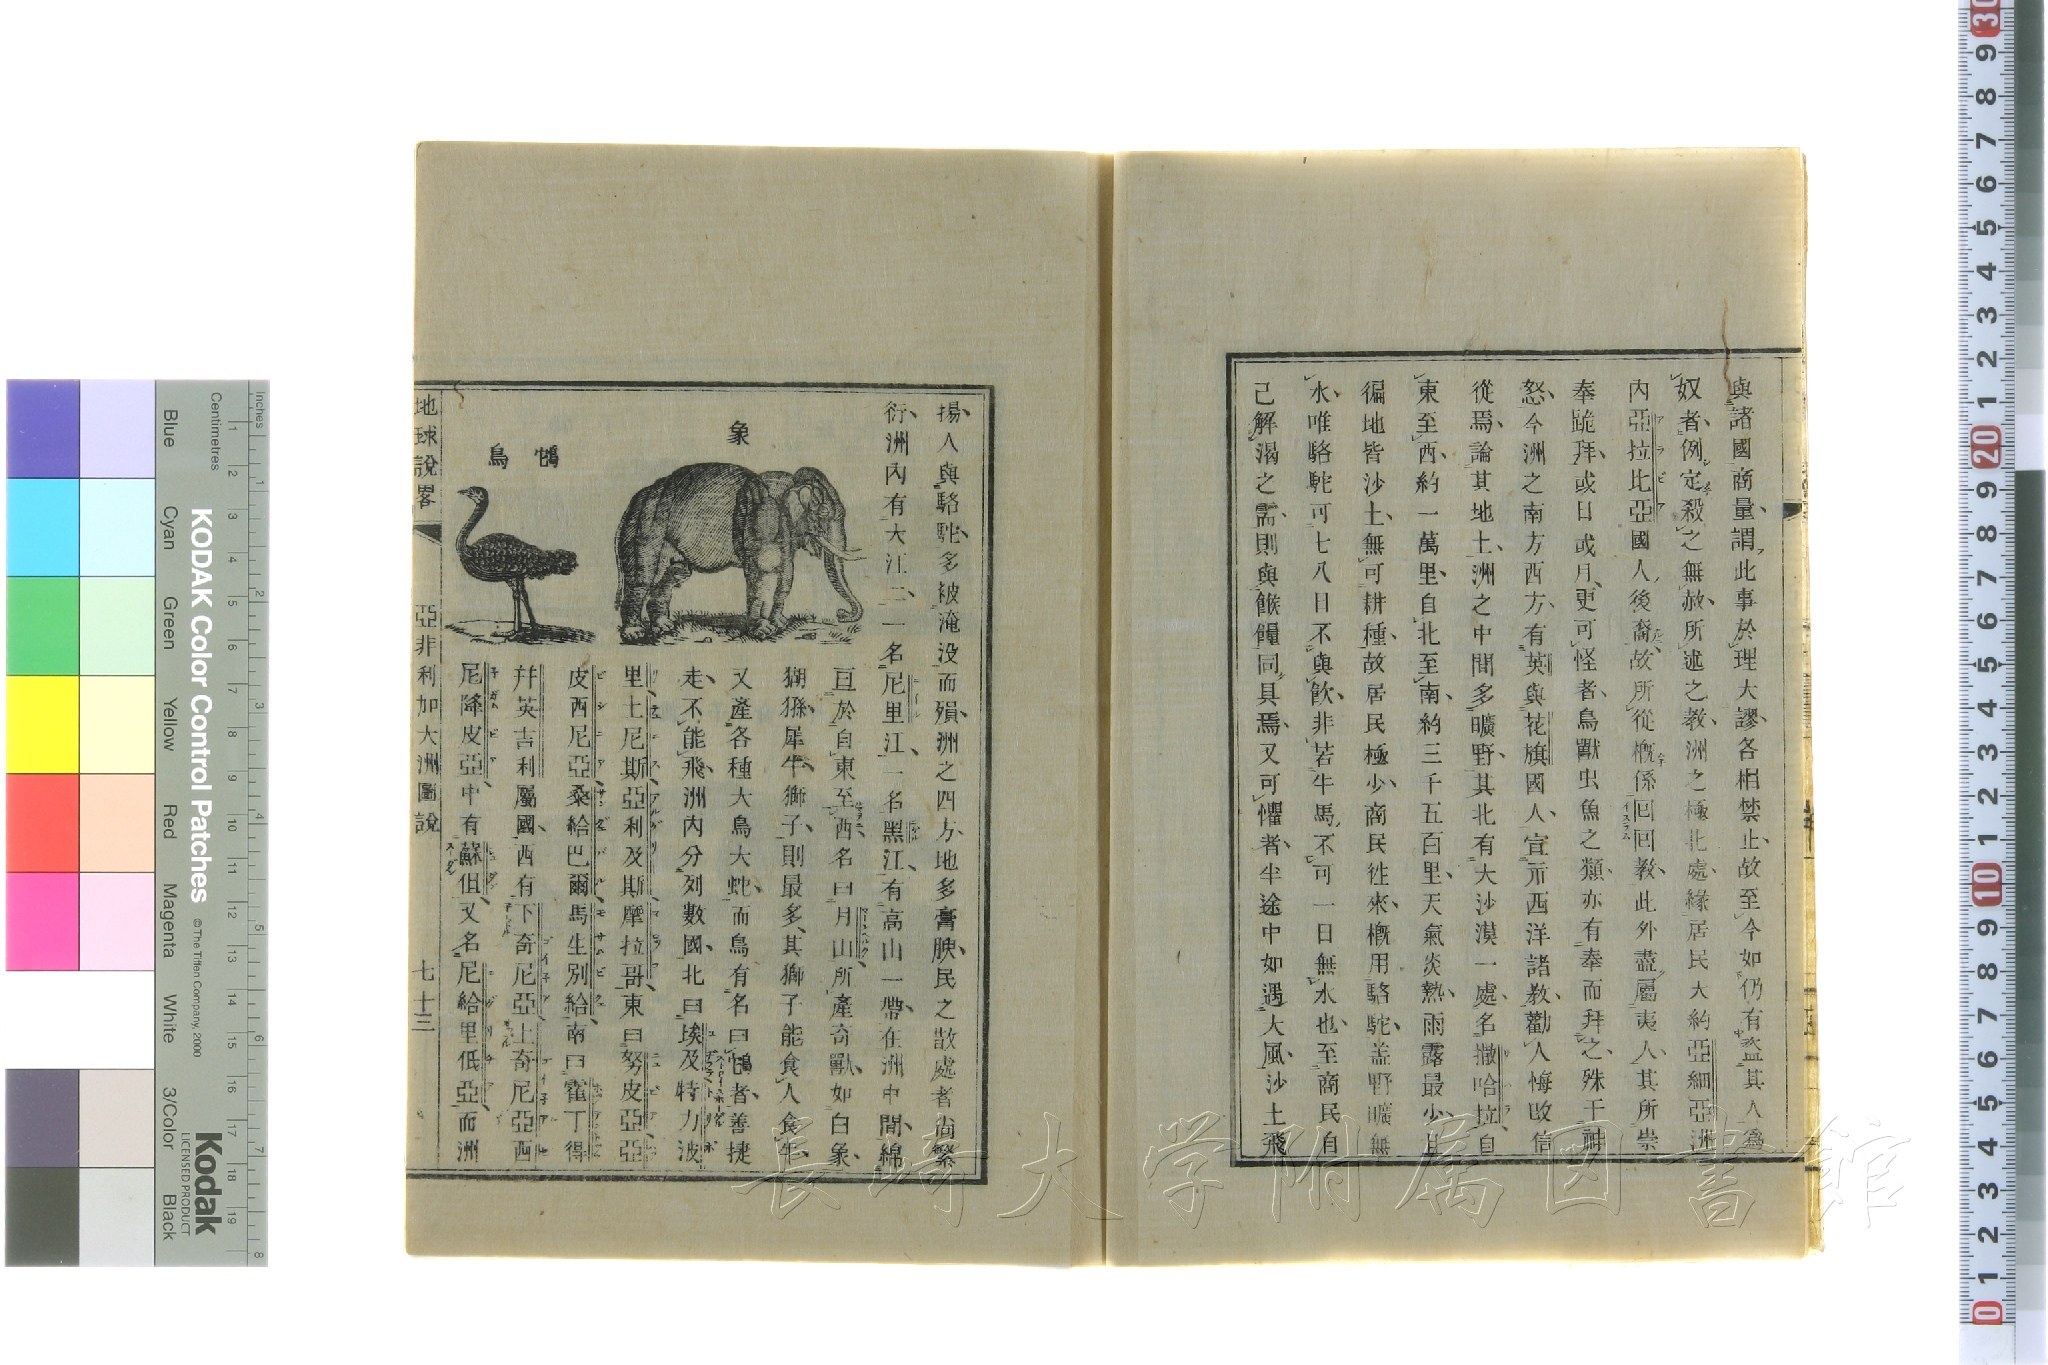 與諸國商量謂此事於理大謬各相禁止故至今如仍有盜其人爲
奴者例定殺之無赦所述之教洲之極北處緣居民大約亞細亞洲
內亞拉比亞國人後裔故所從概係回回教此外盡屬夷人其所崇
奉跪拜或日或月更可怪者鳥獸虫魚之類亦有奉而拜之殊干
怒今洲之南方西方有英與花旗國人宣示西洋諸教勸人悔改信
從焉論其地土洲之中間多曠野其北有大沙漠一處名撒哈拉自
東至西約一萬里自北至南約三千五百里天氣炎熱雨露最少且
徧地皆沙土無可耕種故居民極少商民徃來概用駱駝盖野曠無
水唯駱駝可七八日不與飲非若牛馬不可一日無水也至商民自
己解渴之需則與餱糧同具焉又可懼者半途中如遇大風沙土飛
揚人與駱駝多被淹没而殞洲之四方地多膏腴民之散處者尙繁
衍洲內有大江二一名尼里江一名黑江有高山一帶在洲中間綿
亘於自東至西名曰月山所產奇獸如白象
猢猻犀牛獅子則最多其獅子能食人食牛
又產各種大鳥大蛇而鳥有名曰鴕者善捷
走不能飛洲内分列數國北曰埃及特力波
里土尼斯亞利及斯摩拉哥東曰努皮亞亞
皮西尼亞桑給巴爾馬生別給南曰霍丁得
幷英吉利屬國西有下奇尼亞上奇尼亞西
尼降皮亞中有蘇伹又名尼給里低亞而洲
象
鴕鳥
地球說畧 亞非利加大洲圖說 七十三
長崎大学附属図書館
KODAK Color Control Patches
© The Tiffen Company, 2000
Kodak
LICENSED PRODUCT
Inches
Centimetres
Blue
Cyan
Green
Yellow
Red
Magenta
White
3/Color
Black